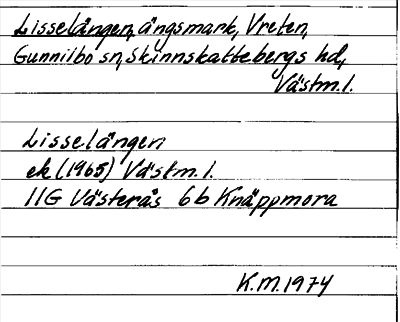 Lisselången, ängsmark, Vreten,
Gunnilbo sn, Skinnskattebergs hd,
Västm.l.
Lisselången
ek (1965) Västm.l.
11G Västerås 6b Knäppmora
K.M. 1974